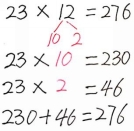 23 × 12 = 276
10 2
23 × 10 = 230
23 × 2 = 46
230 + 46 = 276